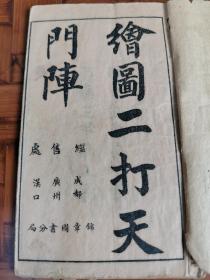 繪圖二打天
門陣
經售處
成都
廣州
漢口
錦章圖書分局